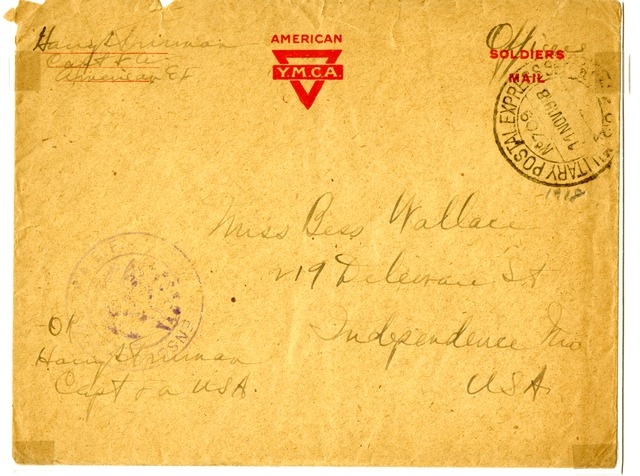 Harry S Truman
Capt FA
American EF
AMERICAN
Y.M.C.A.
Officers
SOLDIERS
MAIL
MILITARY POSTAL EXPRESS
No 709
11 NOV 918
1918
Miss Bess Wallace
219 Delaware St
Independence Mo
USA
OK
Harry S Truman
Capt FA USA.